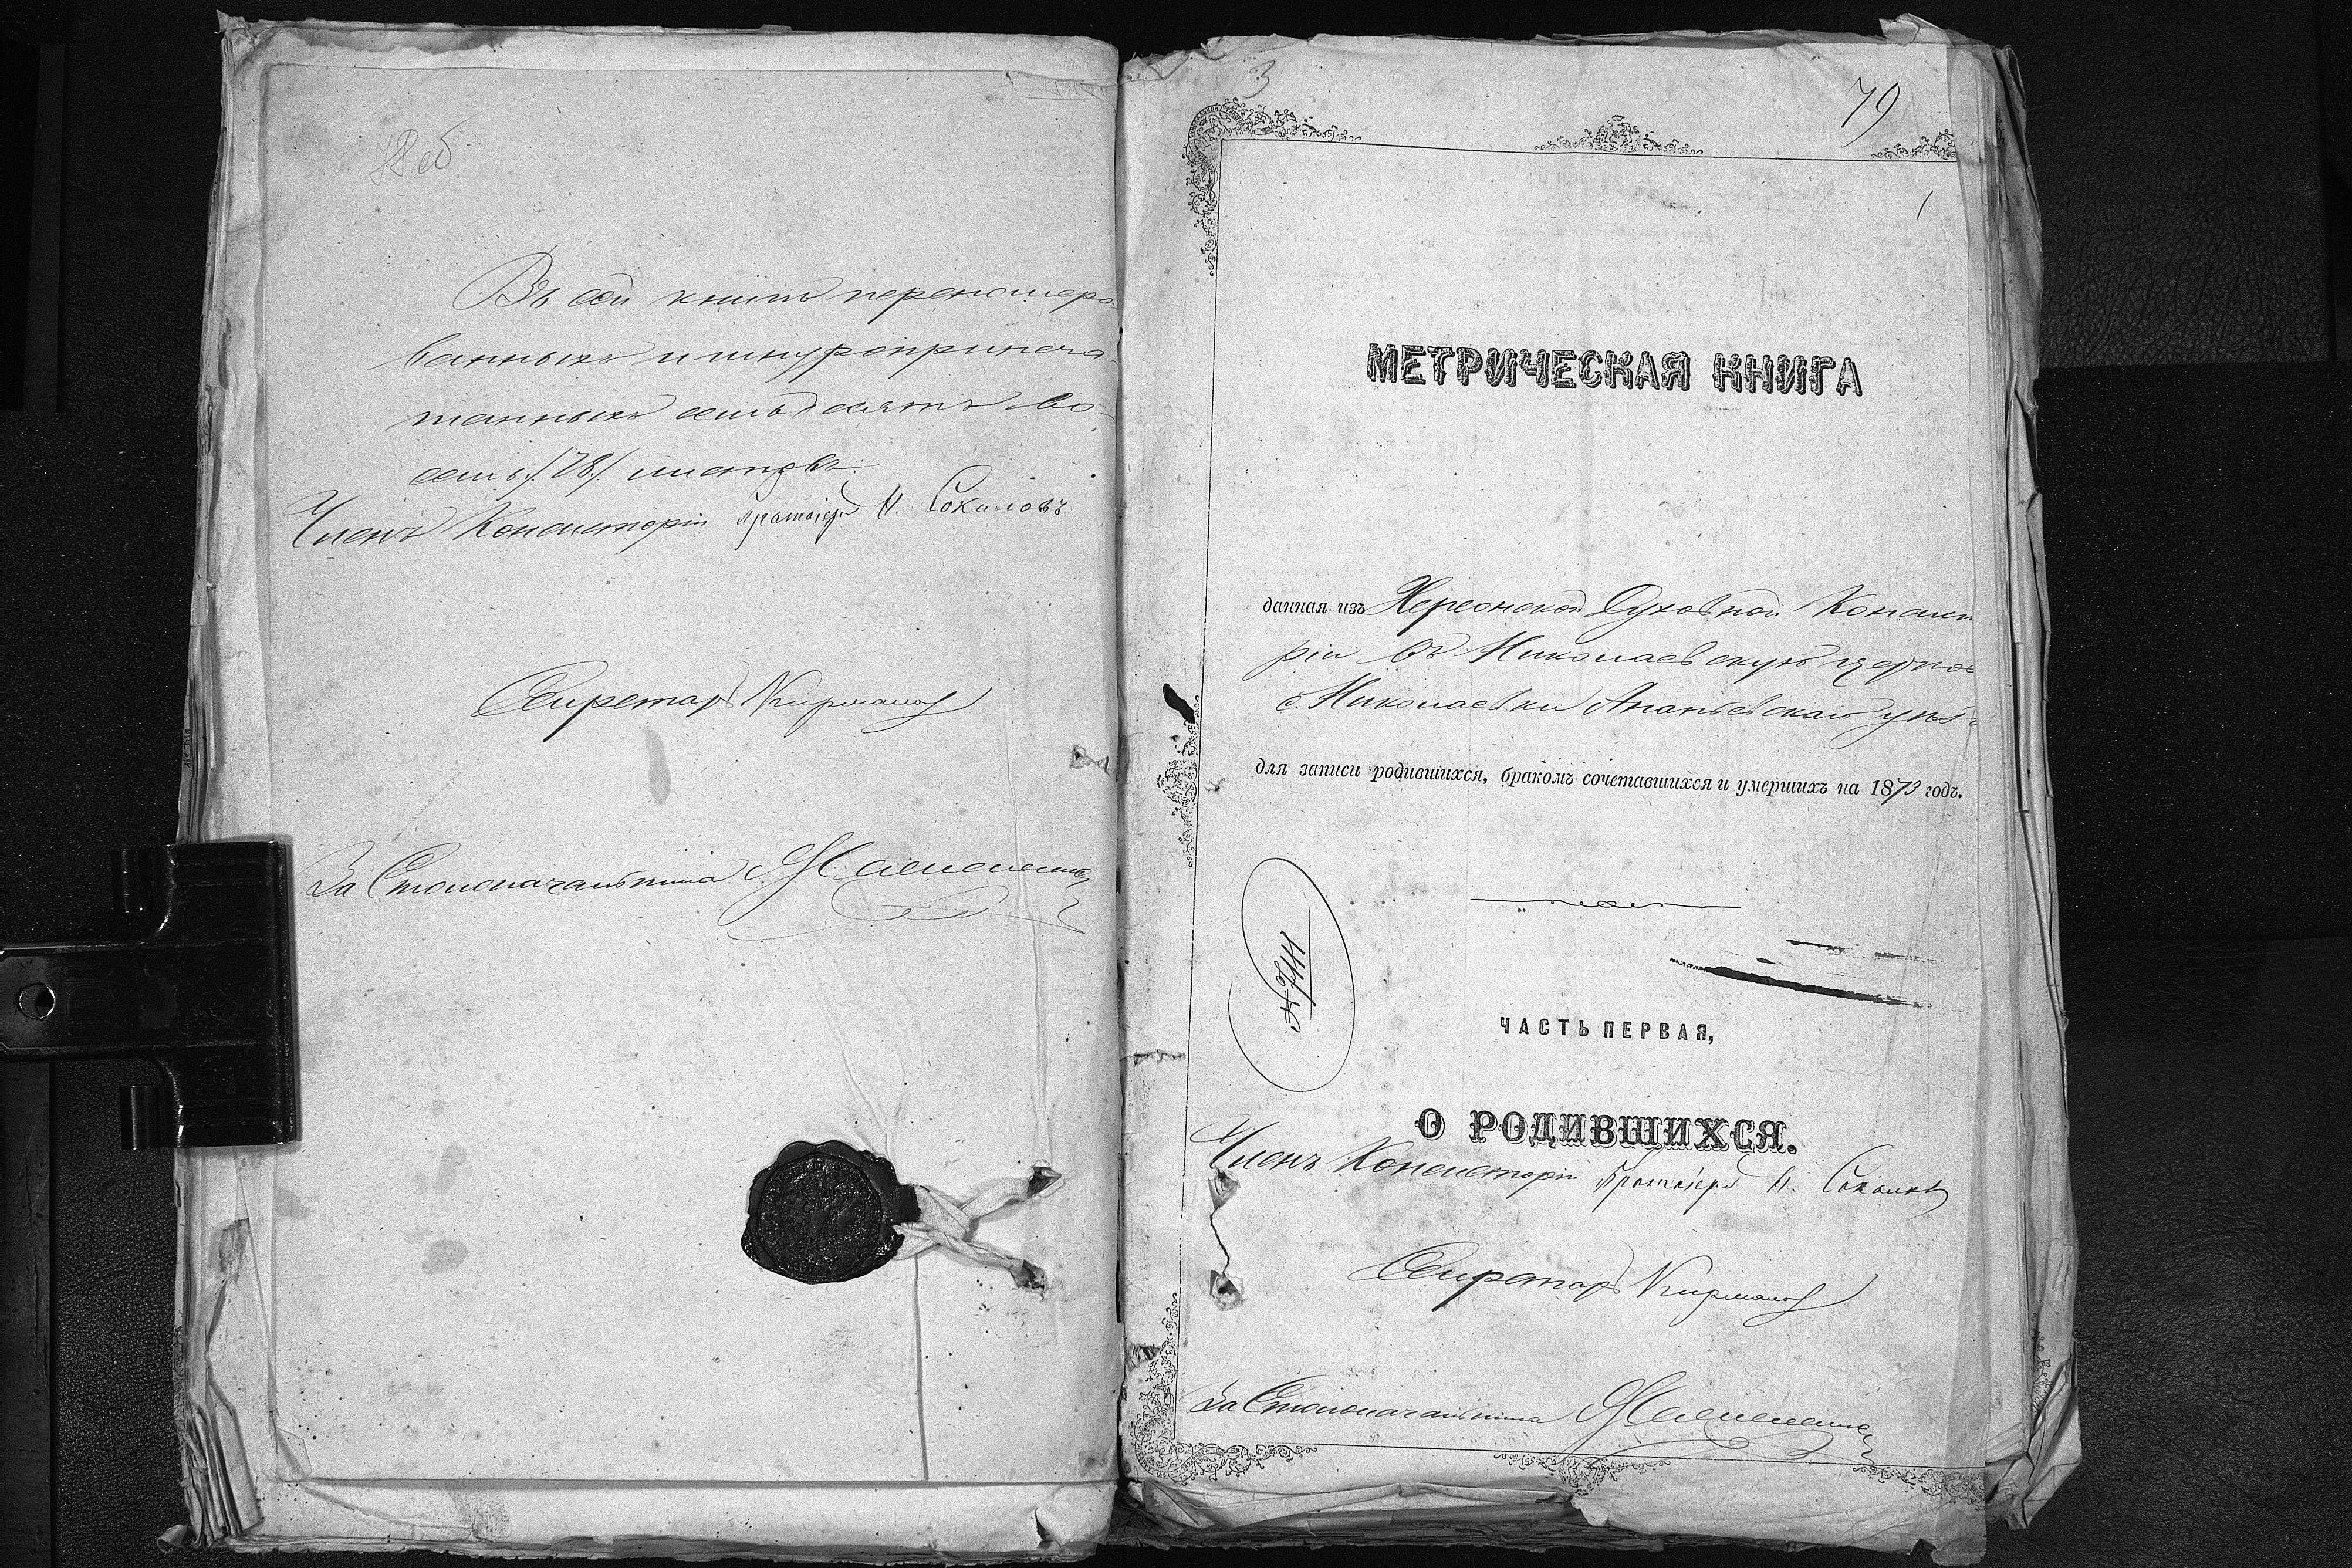 78 об
Въ сей книгѣ перенумеро-
ванныхъ и шнуроприпеча-
танныхъ семьдесятъ во-
семь /78/ листовъ.
Членъ Консисторіи Протоіерей Н. Соколовъ
Секретарь
За Столоначальника
3
79
1
МЕТРИЧЕСКАЯ КНИГА
данная изъ Херсонской Духовной Консисто
ріи въ Николаевскую церковь
с. Николаевки Ананьевскаго уѣз
для записи родившихся, бракомъ сочетавшихся и умершихъ на 1873 годъ.
ЧАСТЬ ПЕРВАЯ,
О РОДИВШИХСЯ.
Членъ Консисторіи Протоіерей Н. Соколовъ
Секретарь
За Столоначальника